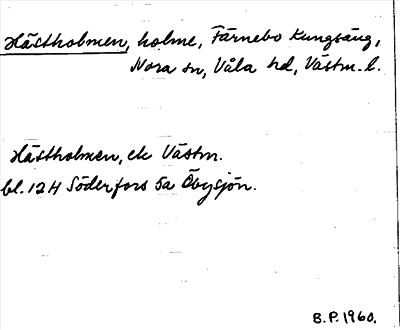 Hästholmen, holme, Färnebo Kungsäng,
Nora sn, Våla hd, Västm. l.
Hästholmen, ek Västm.
bl. 12 H Söderfors 5a Öbysjön.
B.P. 1960.